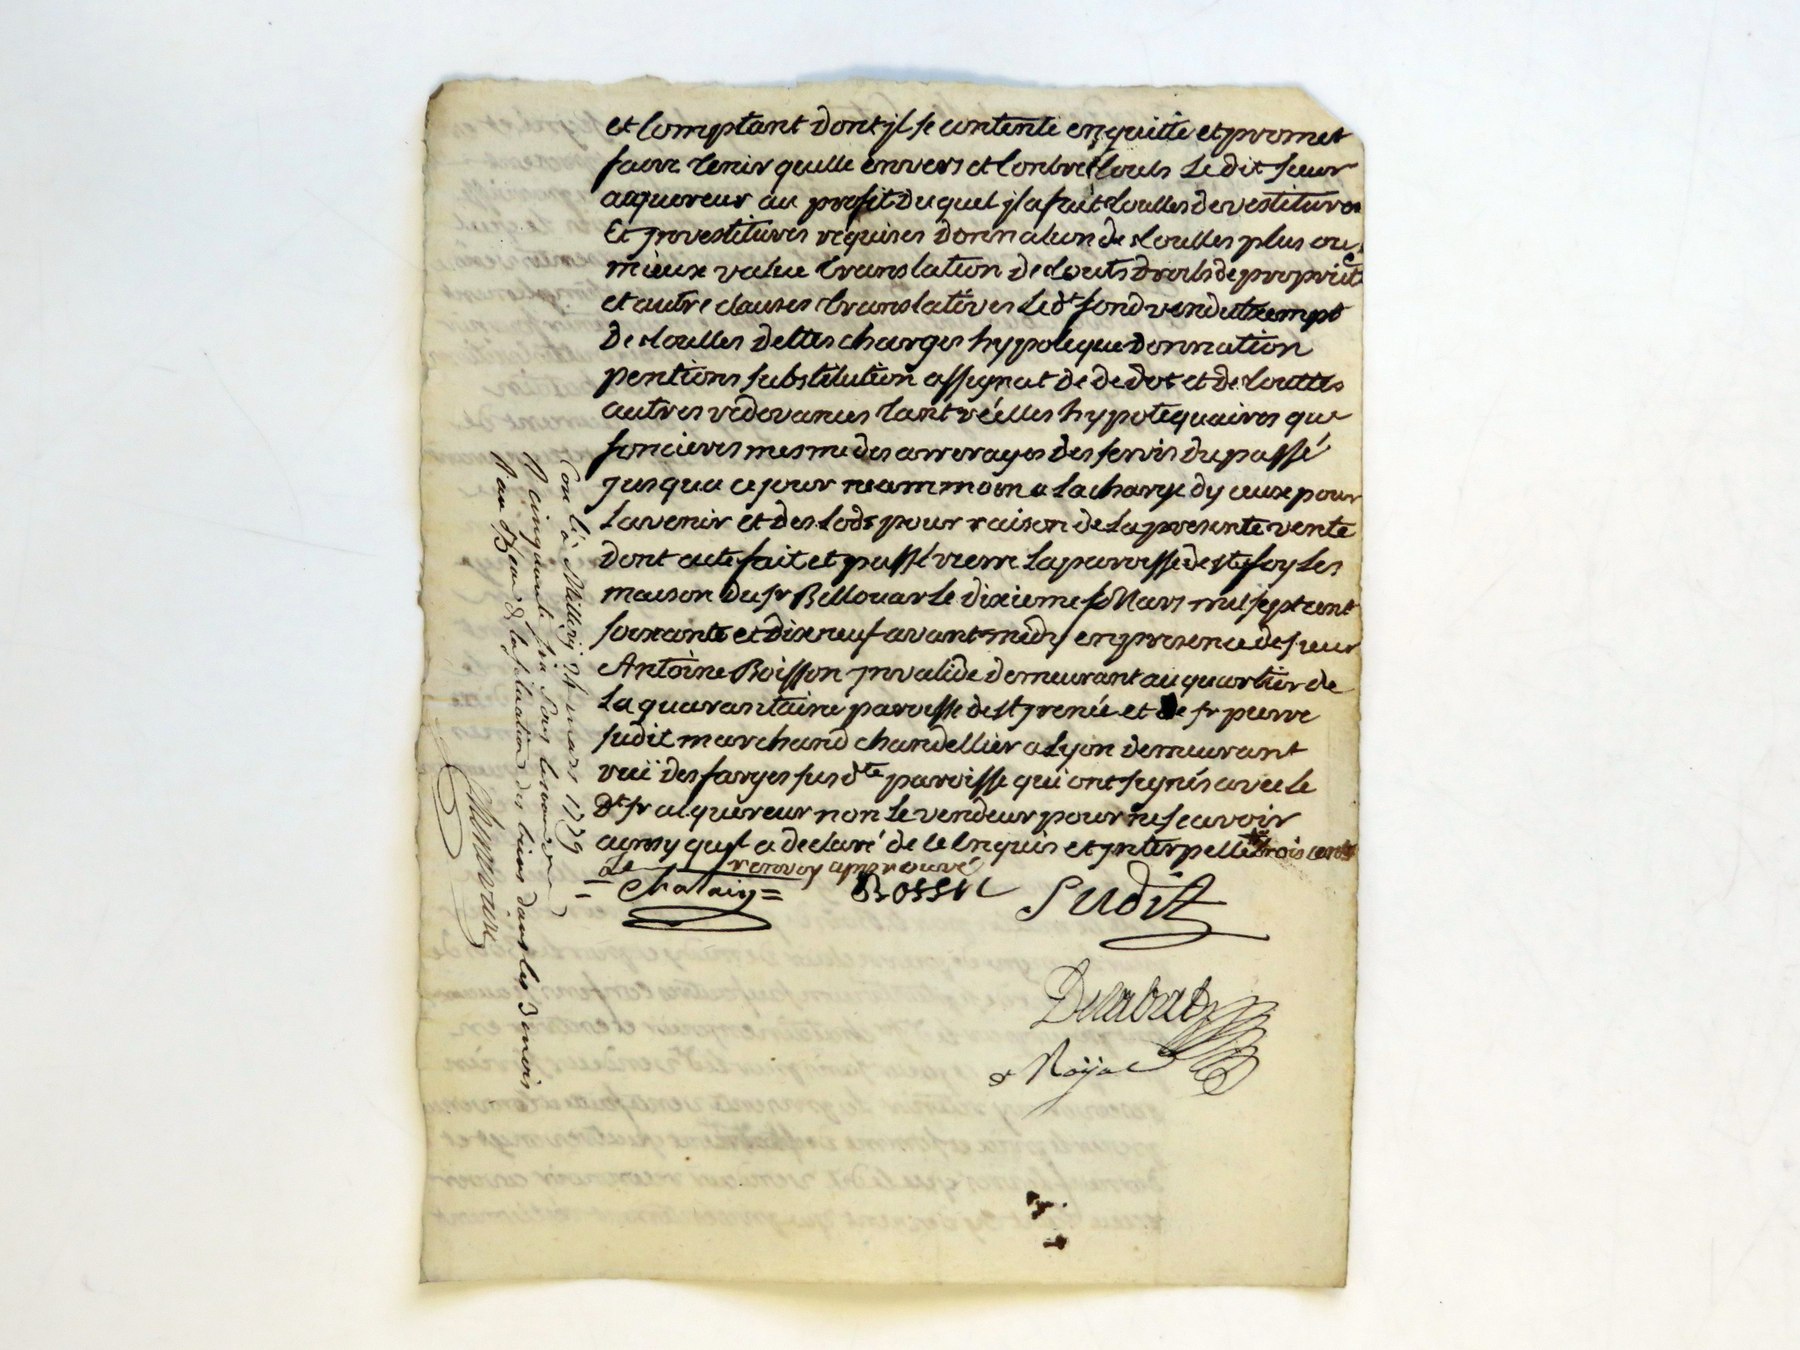 et Comptant dont jl se contente en quitte et promet
faire tenir quitte envers et Contre touts Le dit sieur
acquereur au profit du quel jl a fait touttes devestitures
Et jnvestitures requises donnation de touttes plus ou
mieux value translation de touts droits de proprieté
et autre clauses translatives Le dt fond vendu exempt
De touttes dettes charges hypoteque donnation
pentions substitution assignat de de dot et de touttes
autres redevances tant réelles hypotequaires que
foncieres mesme des arrerages des servis du passé
jusqua ce jour neammoin a la charge dy ceux pour
Lavenir et des Lods pour raison de La presente vente
Dont acte fait et passé La paroisse de ste foy Les
maison du sr Bellouar Le dixieme Mars mil sept cent
soixante et dix neuf avant midy en presence de sieur
Antoine Boisson jnvalide demeurant au quartier de
La quarantaine paroisse de st jrenée et de sr pierre
Judit marchand chandellier a Lyon demeurant
rüe des farges susdte paroisse qui ont signés avec le
Dt sr acquereur non Le vendeur pour ne scavoir
aynsy qujl a declaré de ce Enquis et jnterpellé trois cents
Le renvoy approuvé
= Chalaiy = Bosse Judit
Durabat
& Royac
Con lé à Millery 24 mars 1779
R cinquante sous
R au Beau de la situation des biens dans les 3 mois